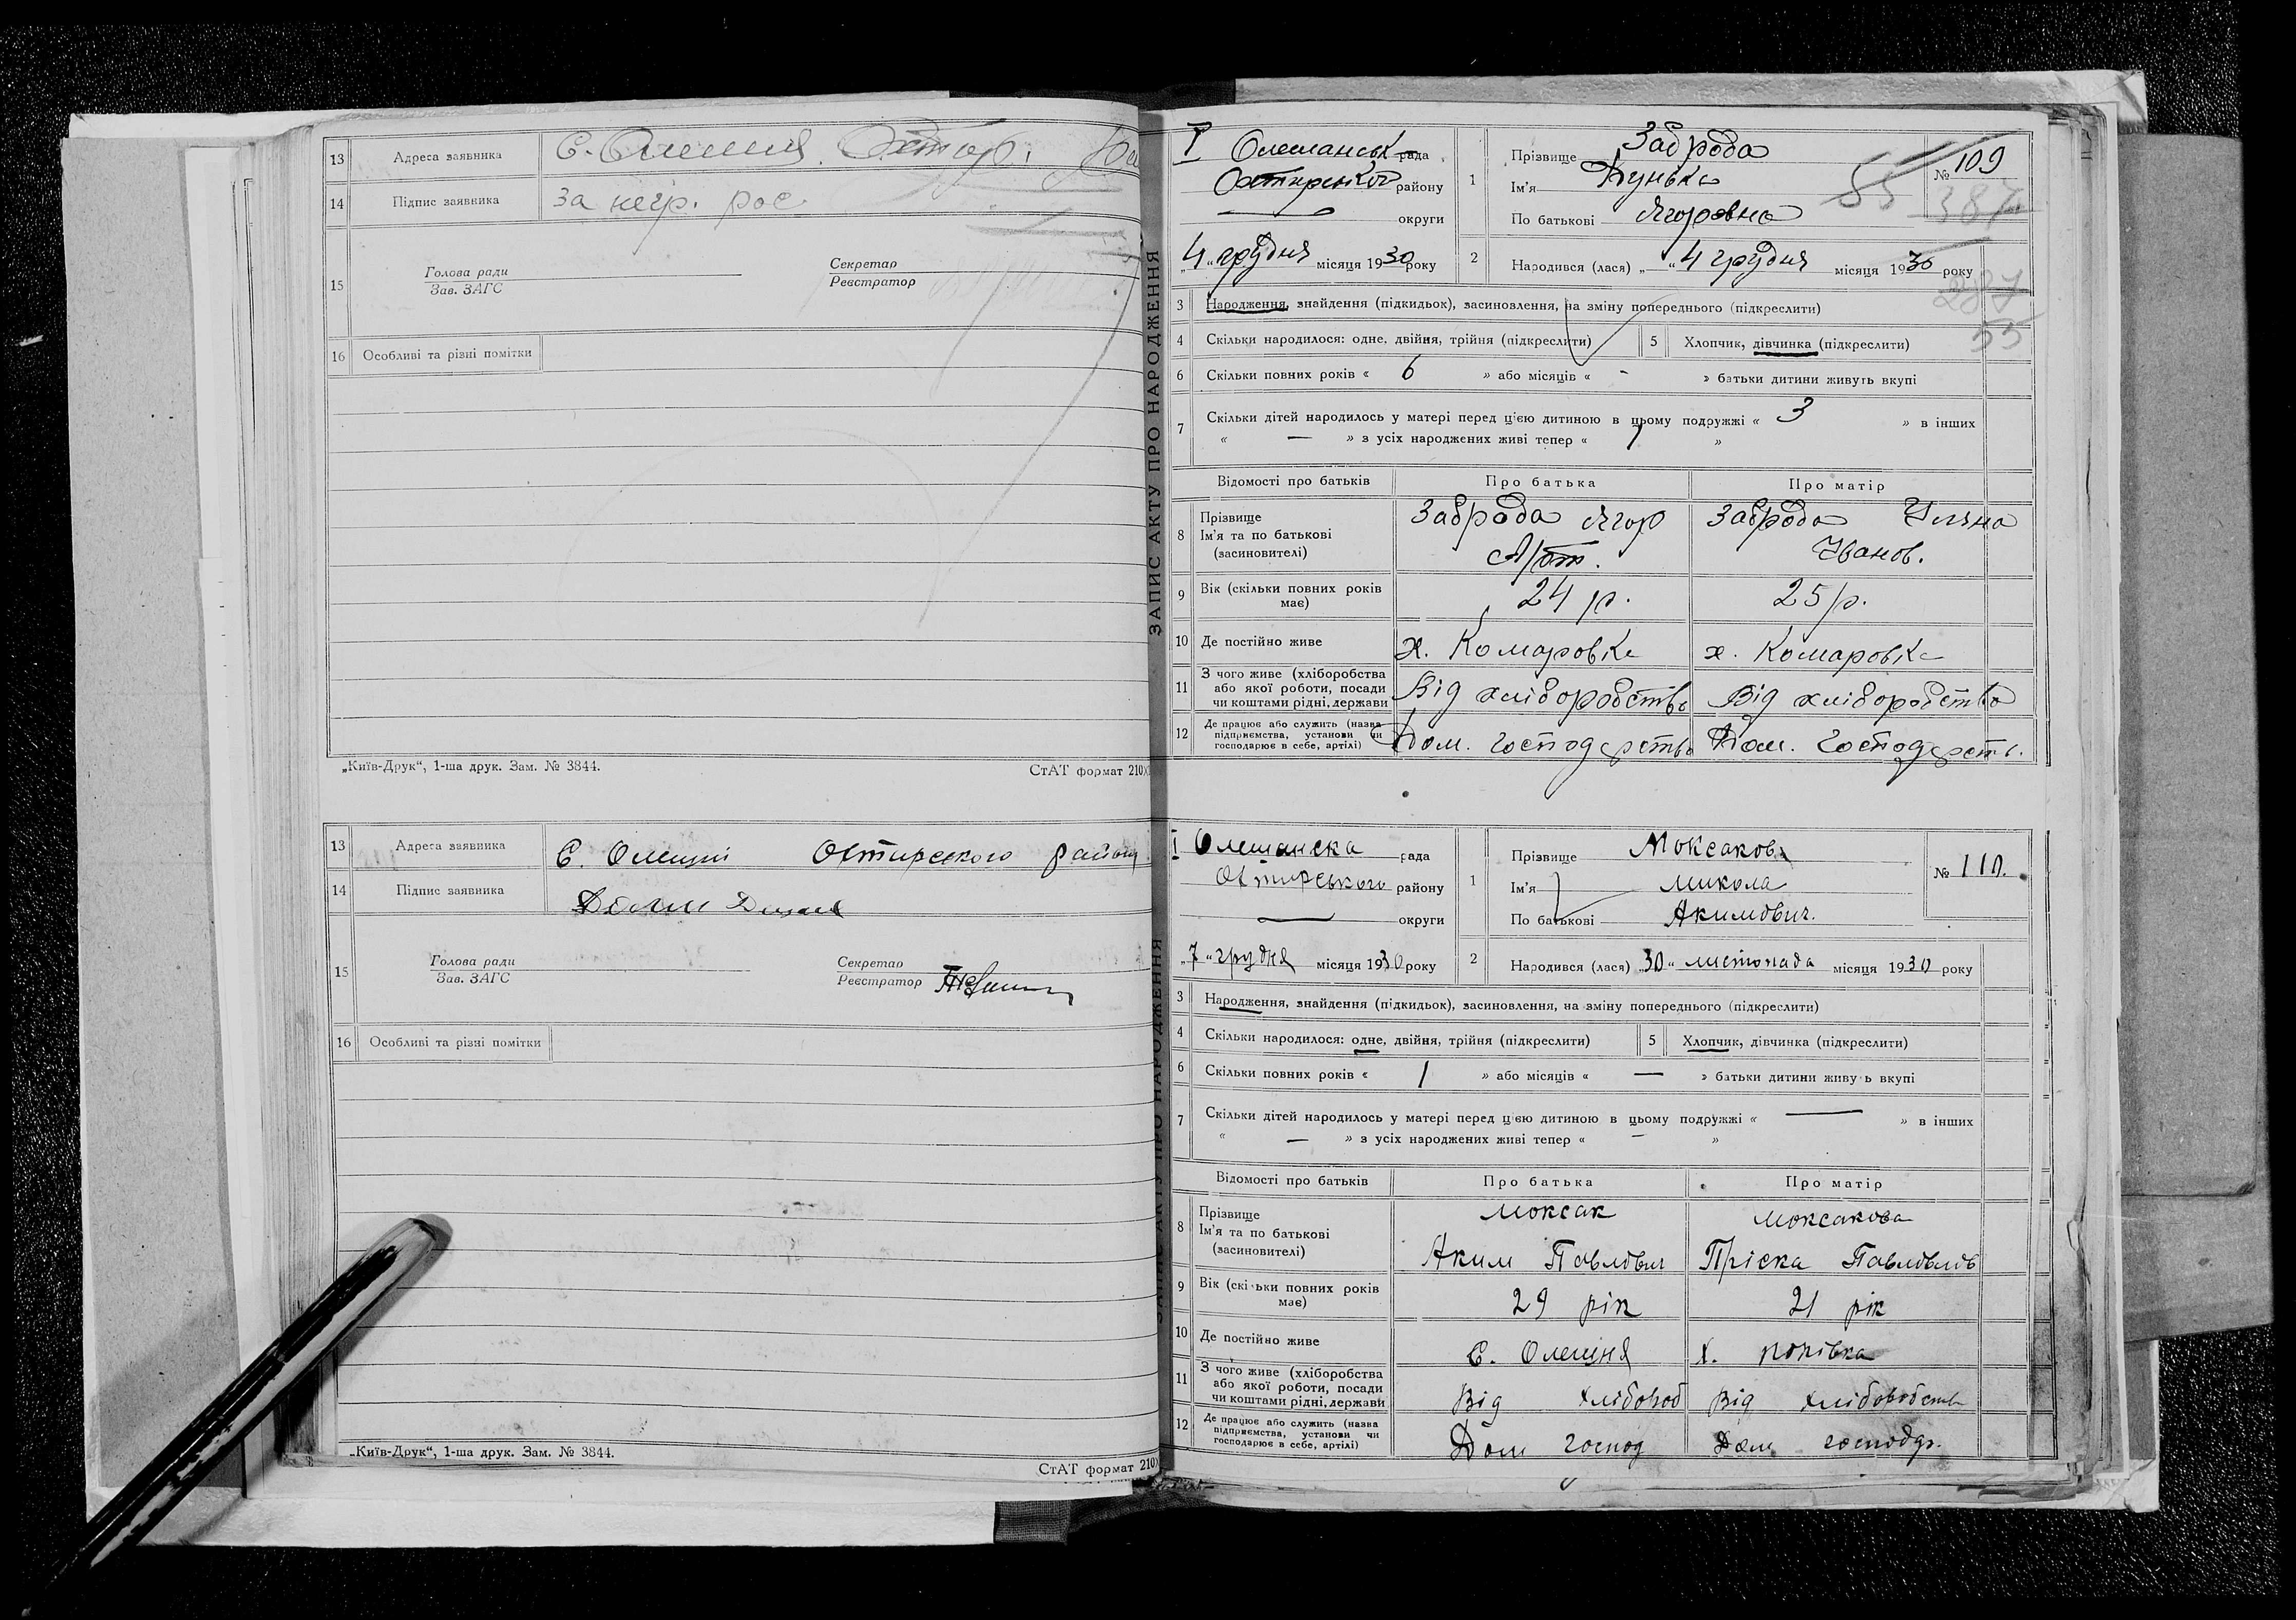 13 Адреса заявника С. Олешня Охтир.
14 Підпис заявника за негр. рос
15 Голова ради
Зав. ЗАГС
Секретар
Реєстратор
16 Особливі та різні помітки
„Київ-Друк“, 1-ша друк. Зам. № 3844.
СтАТ формат 210
13 Адреса заявника С. Олешні Охтирського району
14 Підпис заявника
15 Голова ради
Зав. ЗАГС
Секретар
Реєстратор
16 Особливі та різні помітки
„Київ-Друк“, 1-ша друк. Зам. № 3844.
СтАТ формат 210
ЗАПИС АКТУ ПРО НАРОДЖЕННЯ
I Олешанськ рада
Охтирськог району
— округи
„4“ грудня місяця 1930 року
1 Прізвище Заброда
Ім'я Дунька
По батькові Ягоровна
№ 109
55 387
2 Народився (лася) „—“ 4 грудня місяця 1930 року
287
55
3 Народження, знайдення (підкидьок), засиновлення, на зміну попереднього (підкреслити)
4 Скільки народилося: одне, двійня, трійня (підкреслити)
5 Хлопчик, дівчинка (підкреслити)
6 Скільки повних років « 6 » або місяців « - » батьки дитини живуть вкупі
7 Скільки дітей народилось у матері перед цією дитиною в цьому подружжі « 3 » в інших
« — » з усіх народжених живі тепер « 1 »
Відомості про батьків Про батька Про матір
8 Прізвище
Ім'я та по батькові
(засиновителі)
Заброда Ягор
Арт.
Заброда Уляна
Іванов.
9 Вік (скільки повних років має) 24 р. 25 р.
10 Де постійно живе х. Комаровка х. Комаровка
11 З чого живе (хліборобства
або якої роботи, посади
чи коштами рідні, держави
Від хліборобства Від хліборобства
12 Де працює або служить (назва
підприємства, установи чи
господарює в себе, артілі)
Дом. господарства Дом. господарств.
ЗАПИС АКТУ ПРО НАРОДЖЕННЯ
I Олешанска рада
Охтирського району
— округи
„7“ грудня місяця 1930 року
1 Прізвище Моксакова
Ім'я Микола
По батькові Акимович.
№ 110.
2 Народився (лася) „30“ листопада місяця 1930 року
3 Народження, знайдення (підкидьок), засиновлення, на зміну попереднього (підкреслити)
4 Скільки народилося: одне, двійня, трійня (підкреслити)
5 Хлопчик, дівчинка (підкреслити)
6 Скільки повних років « 1 » або місяців « — » батьки дитини живуть вкупі
7 Скільки дітей народилось у матері перед цією дитиною в цьому подружжі « — » в інших
« — » з усіх народжених живі тепер « — »
Відомості про батьків Про батька Про матір
8 Прізвище
Ім'я та по батькові
(засиновителі)
Моксак
Аким Павлович
Моксакова
Пріска Павловнов
9 Вік (скільки повних років має) 29 рік 21 рік
10 Де постійно живе С. Олешня х. попівка
11 З чого живе (хліборобства
або якої роботи, посади
чи коштами рідні, держави
Від хлібороб Від хліборобств
12 Де працює або служить (назва
підприємства, установи чи
господарює в себе, артілі)
Дом господ Дом господар.